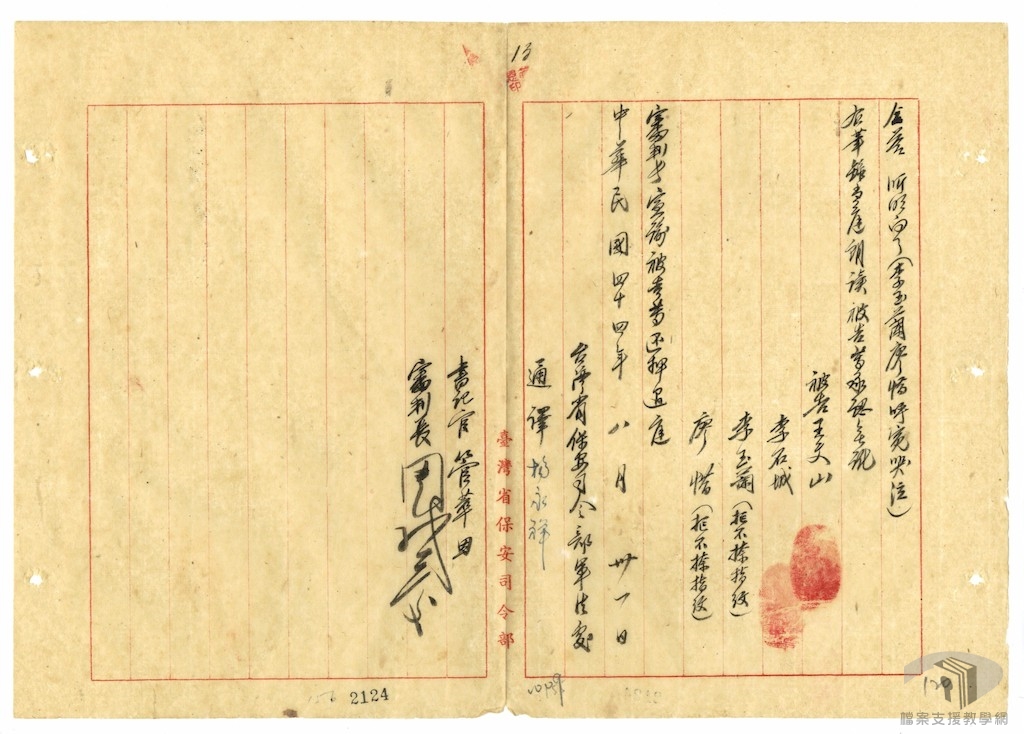 仝答 聽明白了（李玉蘭廖惜呼冤哭泣）
右筆錄當庭朗讀被告等承認無訛
被告王文山
李石城
李玉蘭（拒不捺指紋）
廖惜（拒不捺指紋）
審判長宣諭被告等還押退庭
中華民國四十四年八月卅一日
台灣省保安司令部軍法處
通譯 楊永祥
臺灣省保安司令部
書記官 管華
審判長 周
2124
120
檔案支援教學網